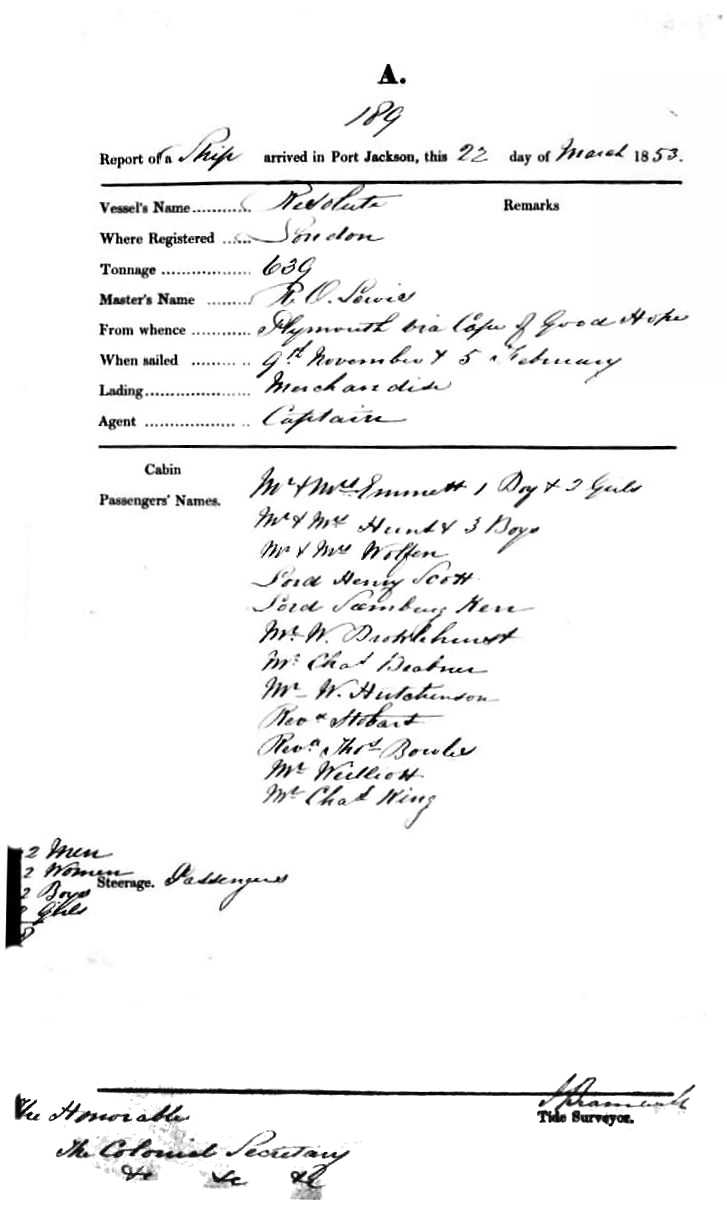 A.
189
Report of a Ship arrived in Port Jackson, this 22 day of March 1853.
Vessel's Name ............ Resolute Remarks
Where Registered ...... London
Tonnage .................. 639
Master's Name ......... R. O. Lewis
From whence ............ Plymouth via Cape of Good Hope
When sailed ............ 9th November & 5 February
Lading..................... Merchandise
Agent ..................... Captain
Cabin
Passengers' Names.
Mr & Mrs Emmett 1 Boy & 2 Girls
Mr & Mrs Hunt & 3 Boys
Mr & Mrs Wolfen
Lord Henry Scott
Lord Kerr
Mr W. Brocklehurst
Mr Chas
Mr W. Hutchinson
Revd Stobart
Revd Thos Bowles
Mr
Mr Chas King
2 Men
2 Women
2 Boys
Girls
Steerage. Passengers
Tide Surveyor.
The Honorable
The Colonial Secretary
&c &c &c